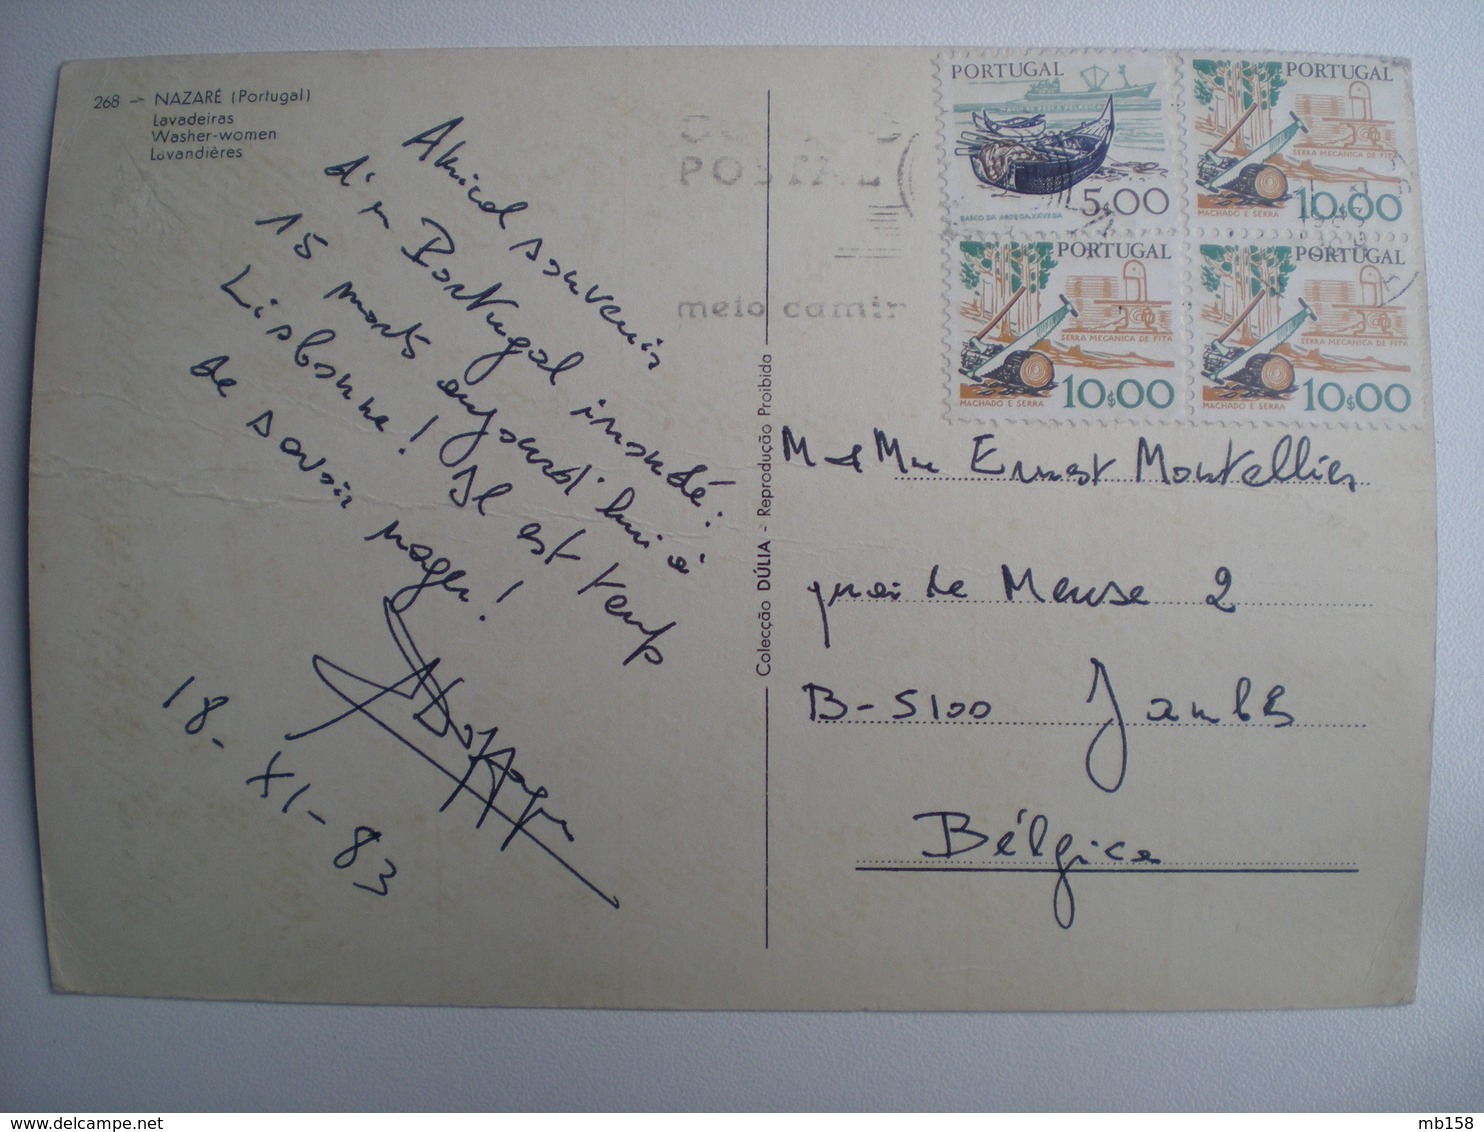 268 — NAZARÉ (Portugal)
Lavadeiras
Washer-women
Lavandières
Amical souvenir
d'un Portugal inondé:
15 morts aujourd'hui à
Lisbonne! Il est temps
de savoir nager!
18-XI-83
Colecção DÚLIA - Reprodução Proibida
POSTAL
meio camin
PORTUGAL
5$00
BARCO DA ARTE DA XÁVEGA
PORTUGAL
SERRA MECANICA DE FITA
10$00
MACHADO E SERRA
PORTUGAL
SERRA MECANICA DE FITA
10$00
MACHADO E SERRA
PORTUGAL
SERRA MECANICA DE FITA
10$00
MACHADO E SERRA
M et Mme Ernest Montellier
quai de Meuse 2
B-5100 Jambes
Belgica
mb158